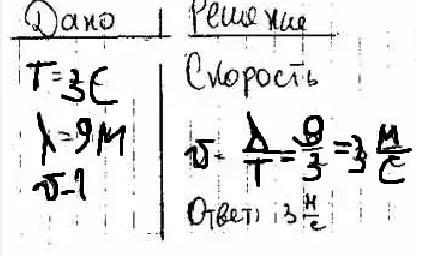 Дано | Решение
T=3с
λ=9м
v-?
Скорость
v = λ/T = 9/3 = 3 м/с
Ответ: 3 м/с